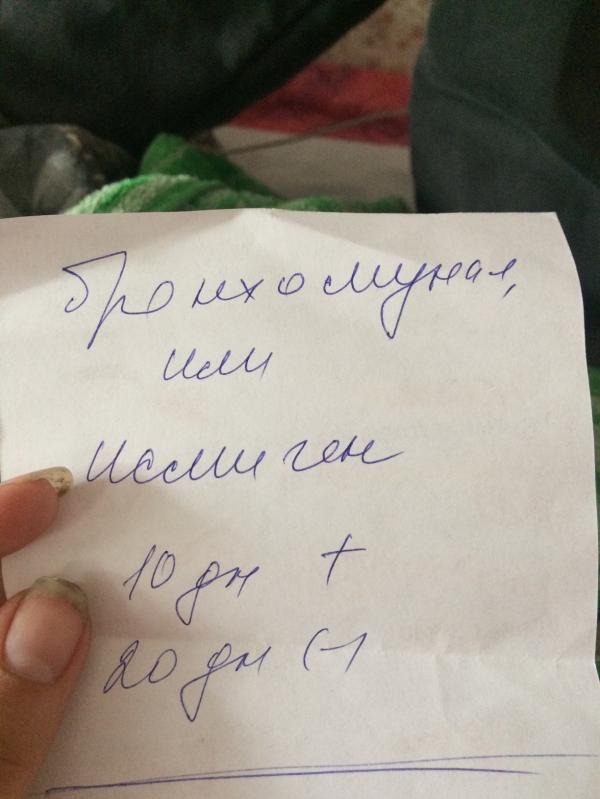 Бронхомунал,
или
Исмиген
10 дн +
20 дн (-)